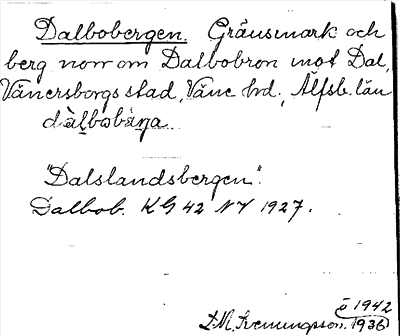 Dalbobergen. Gränsmark och
berg norr om Dalbobron mot Dal,
Vänersborgs stad, Väne hd., Älfsb. län
dàlbobä̀rja.
"Dalslandsbergen".
Dalbob. KG 42 NV 1927.
ö 1942
D.M. 1936